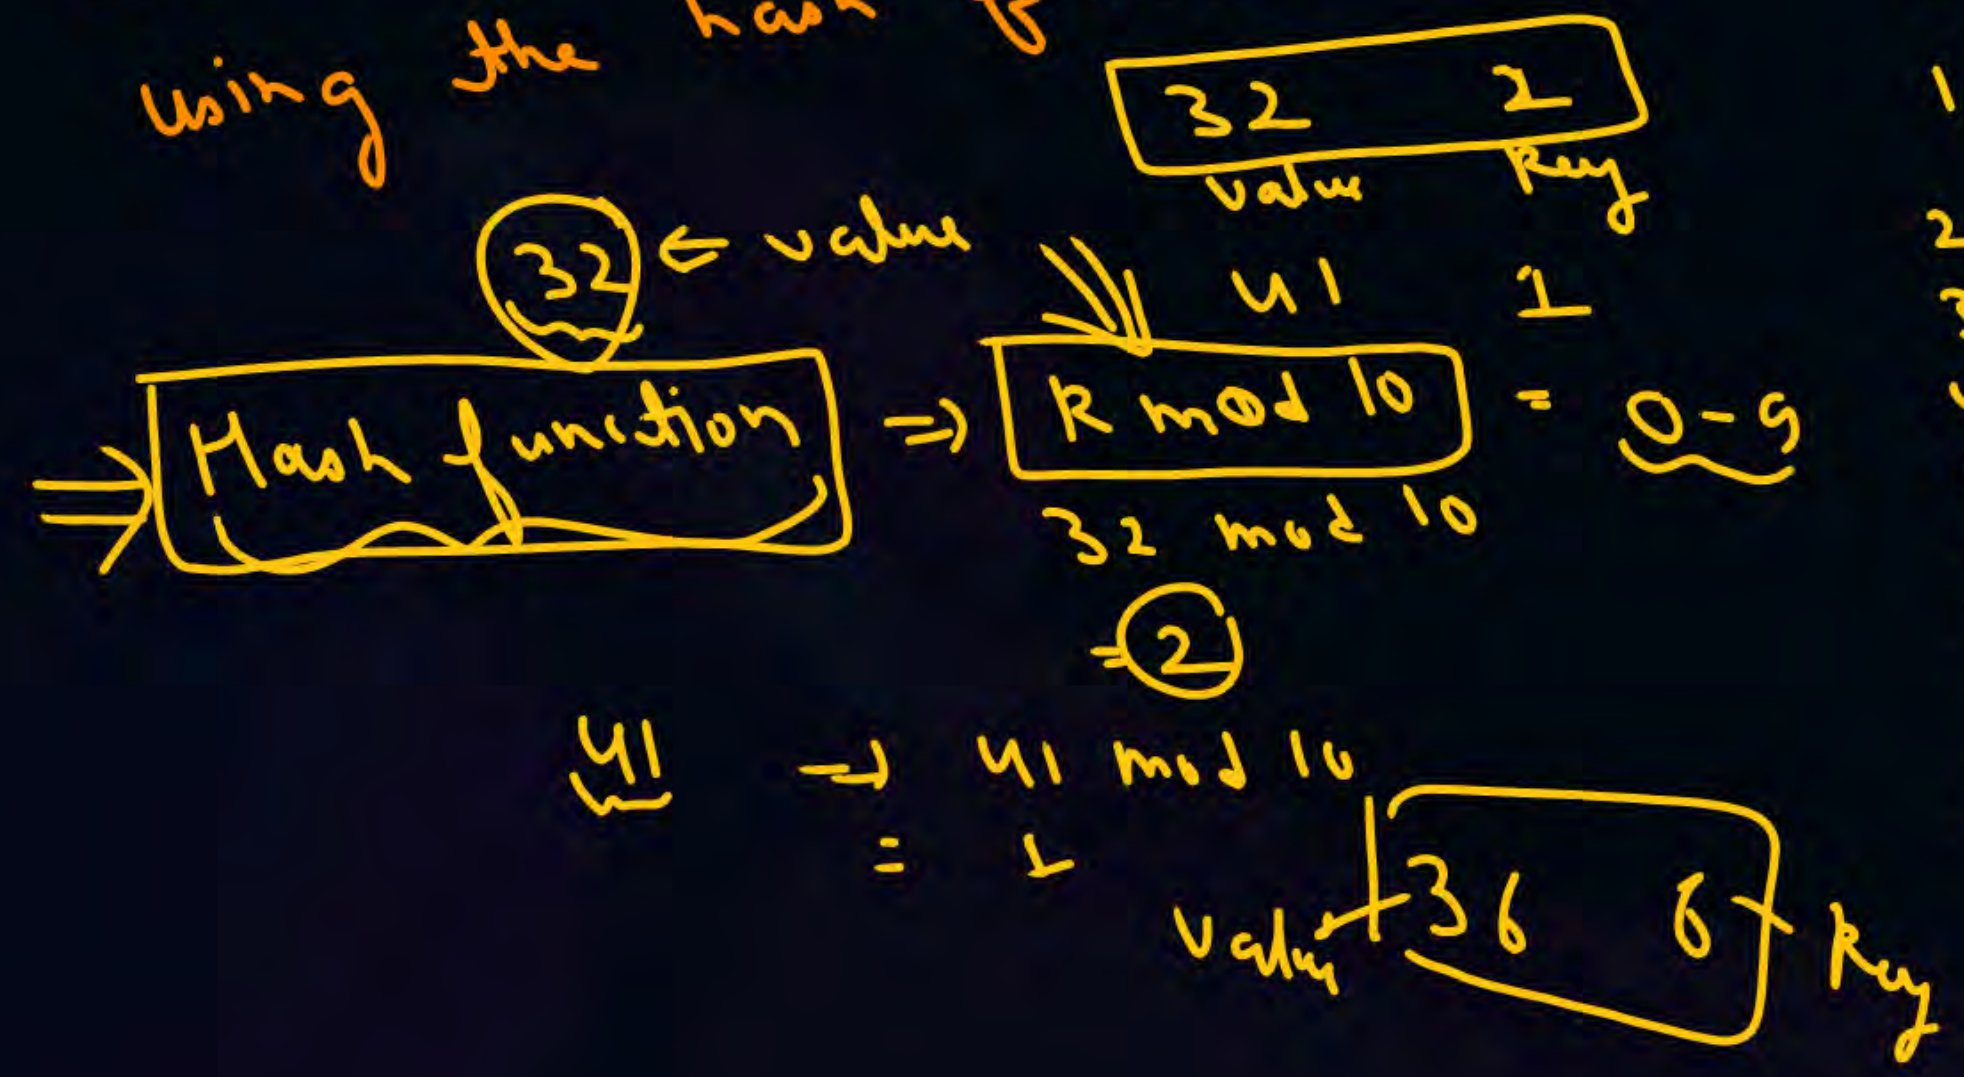 using the hash f
32 2
value key
32 ← value
41 1
Hash function ⇒ K mod 10 = 0-9
32 mod 10
= 2
41 → 41 mod 10
= 1
value 36 6 key
1
2
3